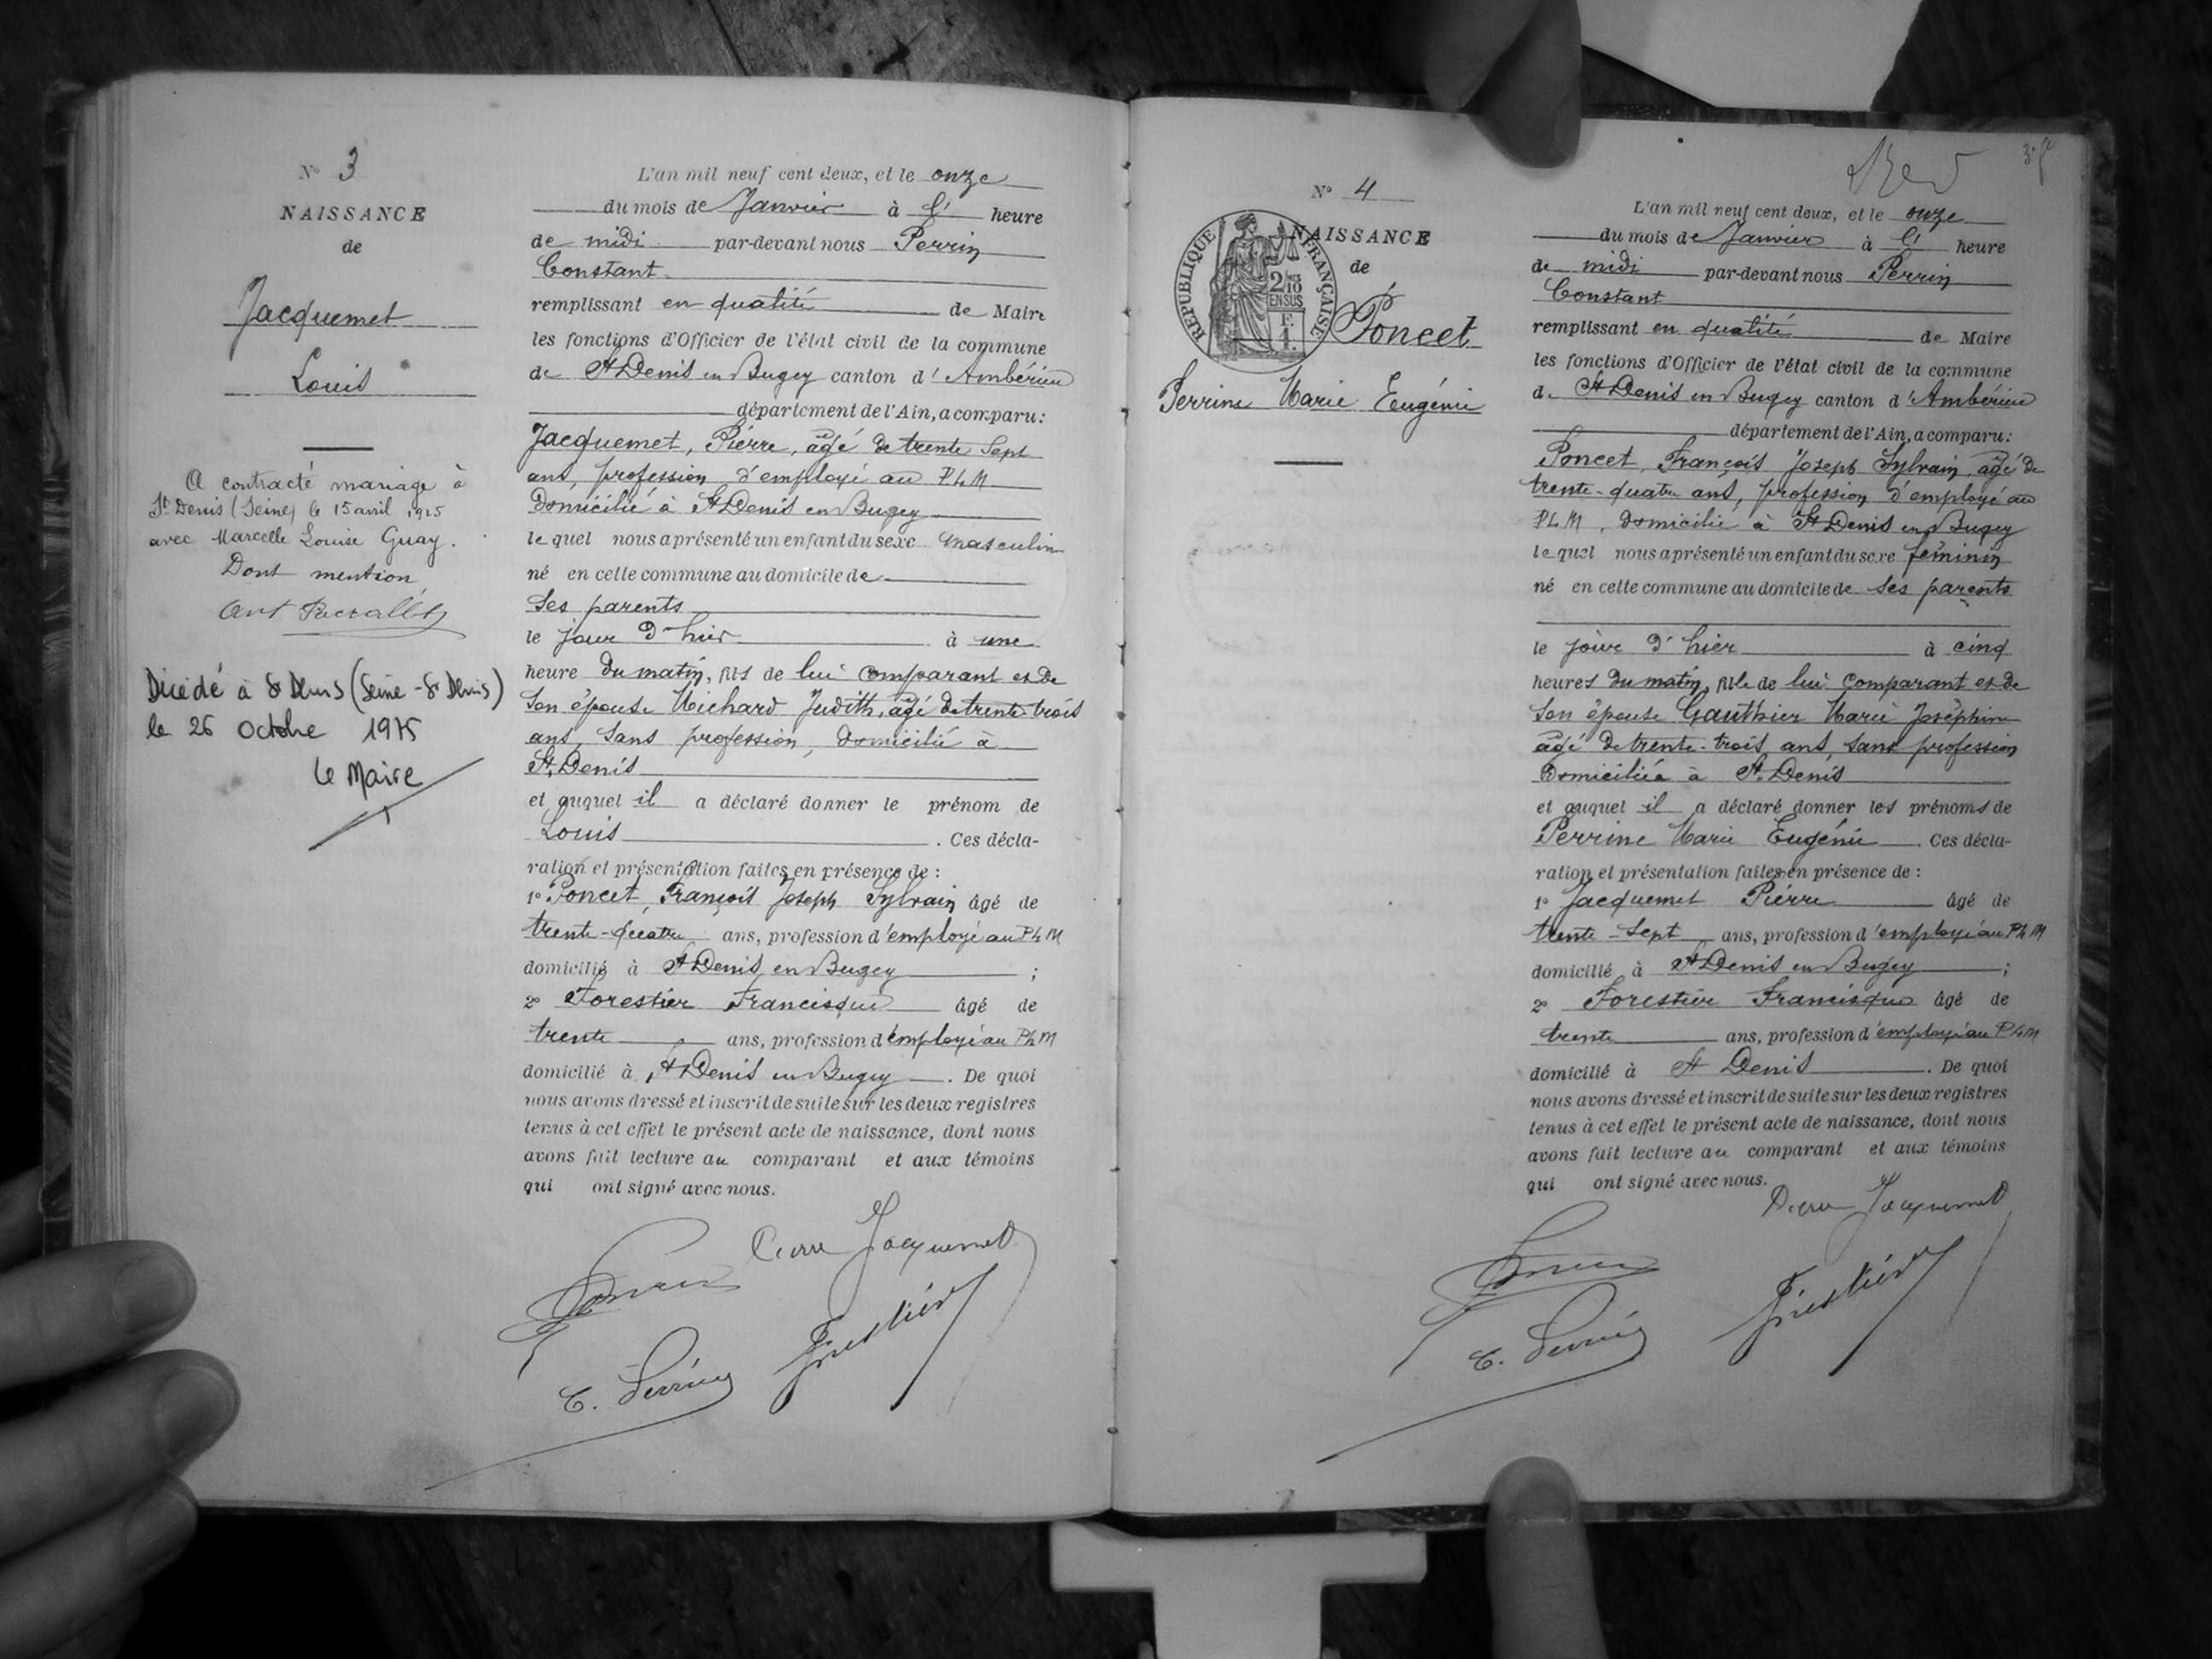 N° 3
NAISSANCE
de
Jacquemet
Louis
A contracté mariage à
St Denis (Seine) le 15 avril 1925
avec Marcelle Louise Guay.
Dont mention
Décédé à St Denis (Seine-St Denis)
le 26 Octobre 1975
Le Maire
L'an mil neuf cent deux, et le onze
du mois de Janvier à l' heure
de midi par-devant nous Perrin
Constant
remplissant en qualité de Maire
les fonctions d'Officier de l'état civil de la commune
de St Denis en Bugey canton d'Ambérieu
département de l'Ain, a comparu:
Jacquemet, Pierre, âgé de trente sept
ans, profession d'employé au PLM
domicilié à St Denis en Bugey
lequel nous a présenté un enfant du sexe masculin
né en cette commune au domicile de
ses parents
le jour d'hier à une
heure du matin, fils de lui comparant et de
son épouse Michard Judith, âgé de trente trois
ans, sans profession, domicilié à
St Denis
et auquel il a déclaré donner le prénom de
Louis. Ces décla-
ration et présentation faites en présence de:
1° Poncet, François Joseph Sylvain âgé de
trente-quatre ans, profession d'employé au PLM
domicilié à St Denis en Bugey;
2° Forestier Francisque âgé de
trente ans, profession d'employé au PLM
domicilié à St Denis en Bugey. De quoi
nous avons dressé et inscrit de suite sur les deux registres
tenus à cet effet le présent acte de naissance, dont nous
avons fait lecture au comparant et aux témoins
qui ont signé avec nous.
Pierre Jacquemet
Poncet
Forestier
C. Perrin
N° 4
NAISSANCE
de
REPUBLIQUE FRANÇAISE
2/10 EN SUS
Poncet
Perrine Marie Eugénie
L'an mil neuf cent deux, et le onze
du mois de Janvier à l' heure
de midi par-devant nous Perrin
Constant
remplissant en qualité de Maire
les fonctions d'Officier de l'état civil de la commune
de St Denis en Bugey canton d'Ambérieu
département de l'Ain, a comparu:
Poncet, François Joseph Sylvain, âgé de
trente-quatre ans, profession d'employé au
PLM, domicilié à St Denis en Bugey
lequel nous a présenté un enfant du sexe féminin
né en cette commune au domicile de ses parents
le jour d'hier à cinq
heures du matin, fille de lui comparant et de
son épouse Gauthier Marie Joséphine
âgé de trente-trois ans, sans profession
domiciliée à St Denis
et auquel il a déclaré donner les prénoms de
Perrine Marie Eugénie. Ces décla-
ration et présentation faites en présence de:
1° Jacquemet Pierre âgé de
trente-sept ans, profession d'employé au PLM
domicilié à St Denis en Bugey;
2° Forestier Francisque âgé de
trente ans, profession d'employé au PLM
domicilié à St Denis. De quoi
nous avons dressé et inscrit de suite sur les deux registres
tenus à cet effet le présent acte de naissance, dont nous
avons fait lecture au comparant et aux témoins
qui ont signé avec nous.
Pierre Jacquemet
Poncet
Forestier
C. Perrin